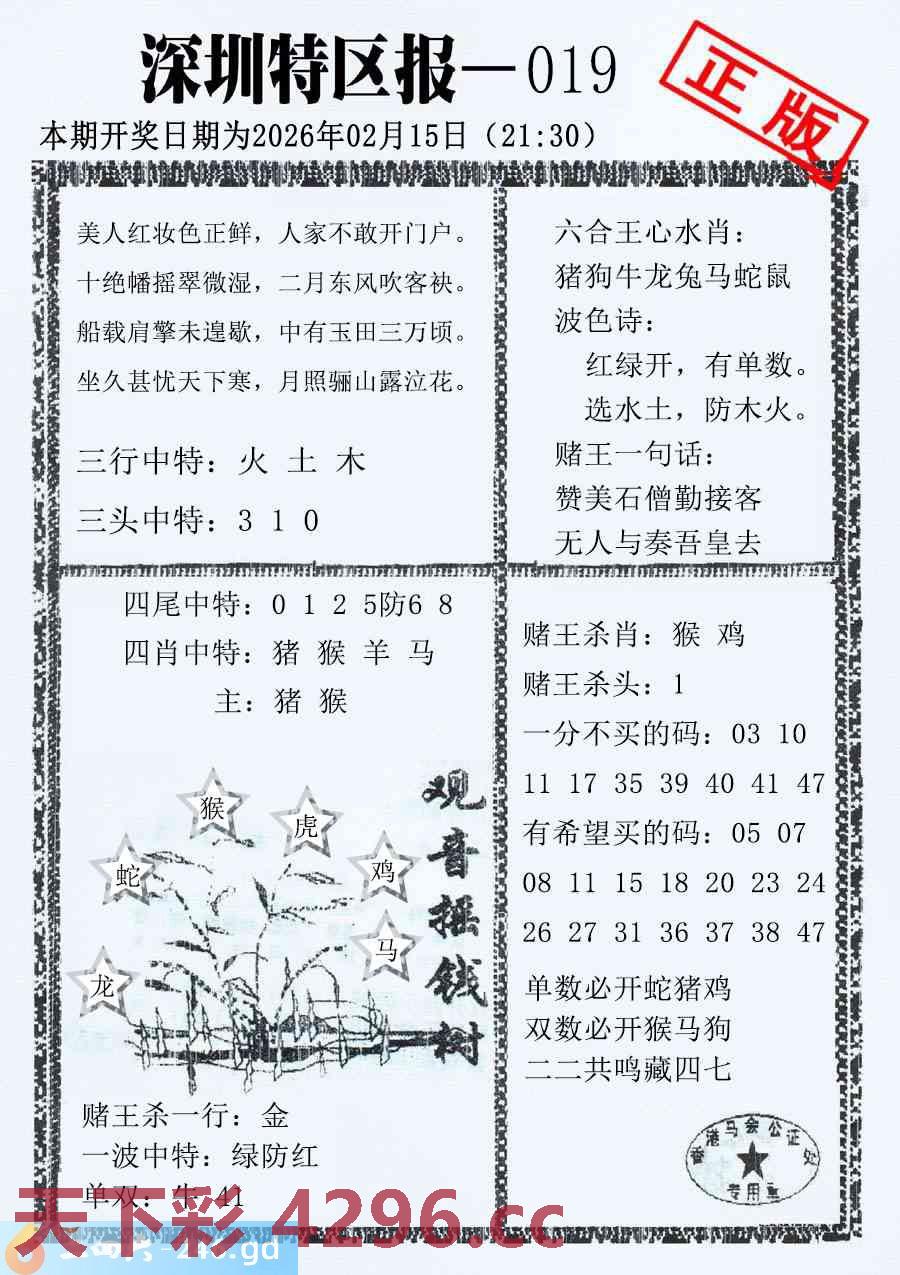 深圳特区报—019
正版
本期开奖日期为2026年02月15日（21:30）
美人红妆色正鲜，人家不敢开门户。
十绝幡摇翠微湿，二月东风吹客袂。
船载肩擎未遑歇，中有玉田三万顷。
坐久甚忧天下寒，月照骊山露泣花。
三行中特：火 土 木
三头中特：3 1 0
六合王心水肖：
猪狗牛龙兔马蛇鼠
波色诗：
红绿开，有单数。
选水土，防木火。
赌王一句话：
赞美石僧勤接客
无人与奏吾皇去
四尾中特：0 1 2 5防6 8
四肖中特：猪 猴 羊 马
主：猪 猴
观音摇钱树
猴
虎
蛇
鸡
马
龙
赌王杀一行：金
一波中特：绿防红
单双：牛 41
赌王杀肖：猴 鸡
赌王杀头：1
一分不买的码：03 10
11 17 35 39 40 41 47
有希望买的码：05 07
08 11 15 18 20 23 24
26 27 31 36 37 38 47
单数必开蛇猪鸡
双数必开猴马狗
二二共鸣藏四七
香港马会公证处
专用章
天下彩 4296.cc